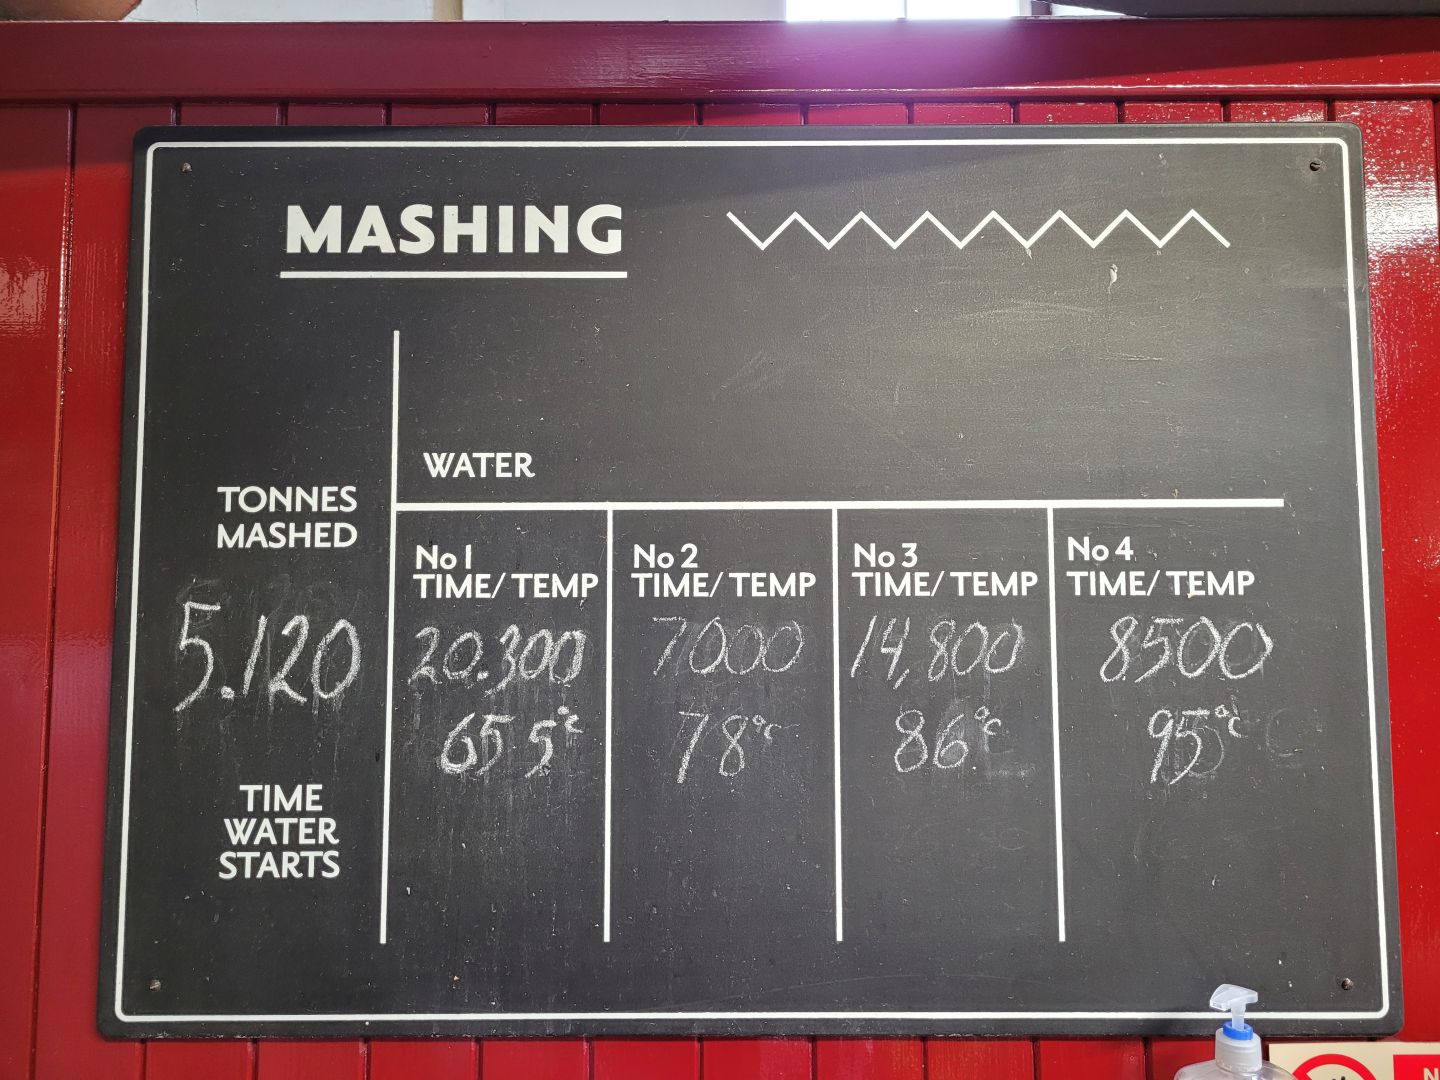 MASHING
WATER
TONNES
MASHED
5.120
TIME
WATER
STARTS
No 1
TIME/ TEMP
20.300
65 5°c
No 2
TIME/ TEMP
7000
78°c
No 3
TIME/ TEMP
14,800
86°c
No 4
TIME/ TEMP
8500
95°c
N